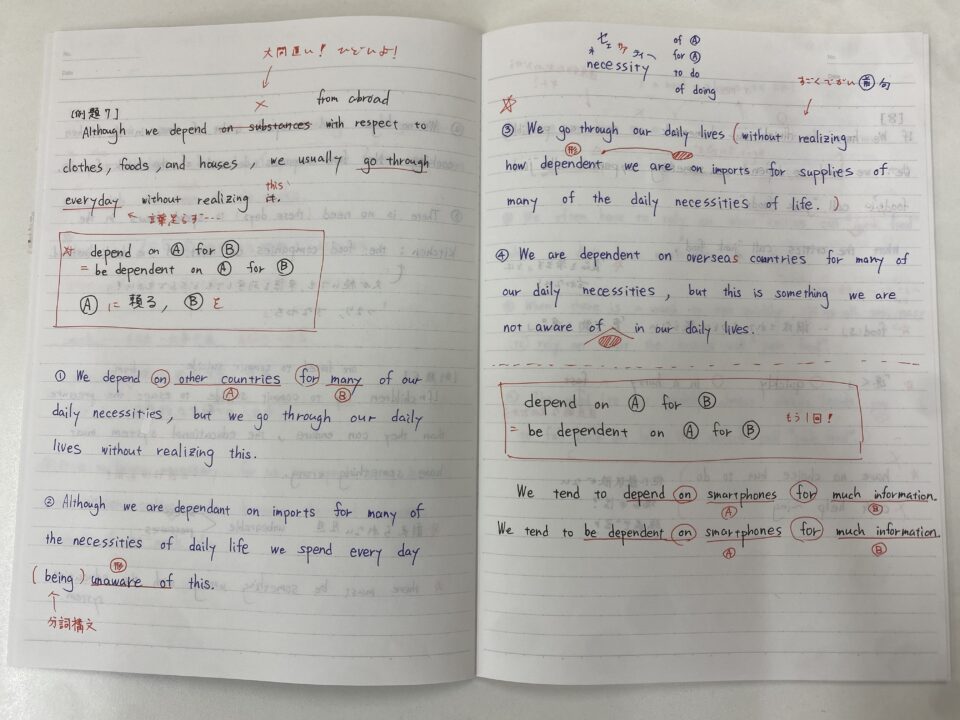 大間違い! ひどいよ!
×
from abroad
[例題7]
Although we depend on substances with respect to
clothes, foods, and houses, we usually go through
this
everyday without realizing it.
言葉足らず…
☆ depend on Ⓐ for Ⓑ
= be dependent on Ⓐ for Ⓑ
Ⓐ に 頼る, Ⓑ を
① We depend on other countries for many of our
Ⓐ Ⓑ
daily necessities, but we go through our daily
lives without realizing this.
② Although we are dependant on imports for many of
the necessities of daily life we spend every day
形
(being) unaware of this.
分詞構文
セェサティー
necessity
of Ⓐ
for Ⓐ
to do
of doing
すごくでかい 前 句
☆
③ We go through our daily lives (without realizing
形
how dependent we are on imports for supplies of
many of the daily necessities of life.)
④ We are dependent on overseas countries for many of
our daily necessities, but this is something we are
not aware of in our daily lives.
depend on Ⓐ for Ⓑ
もう1回!
= be dependent on Ⓐ for Ⓑ
We tend to depend on smartphones for much information.
Ⓐ Ⓑ
We tend to be dependent on smartphones for much information.
Ⓐ Ⓑ